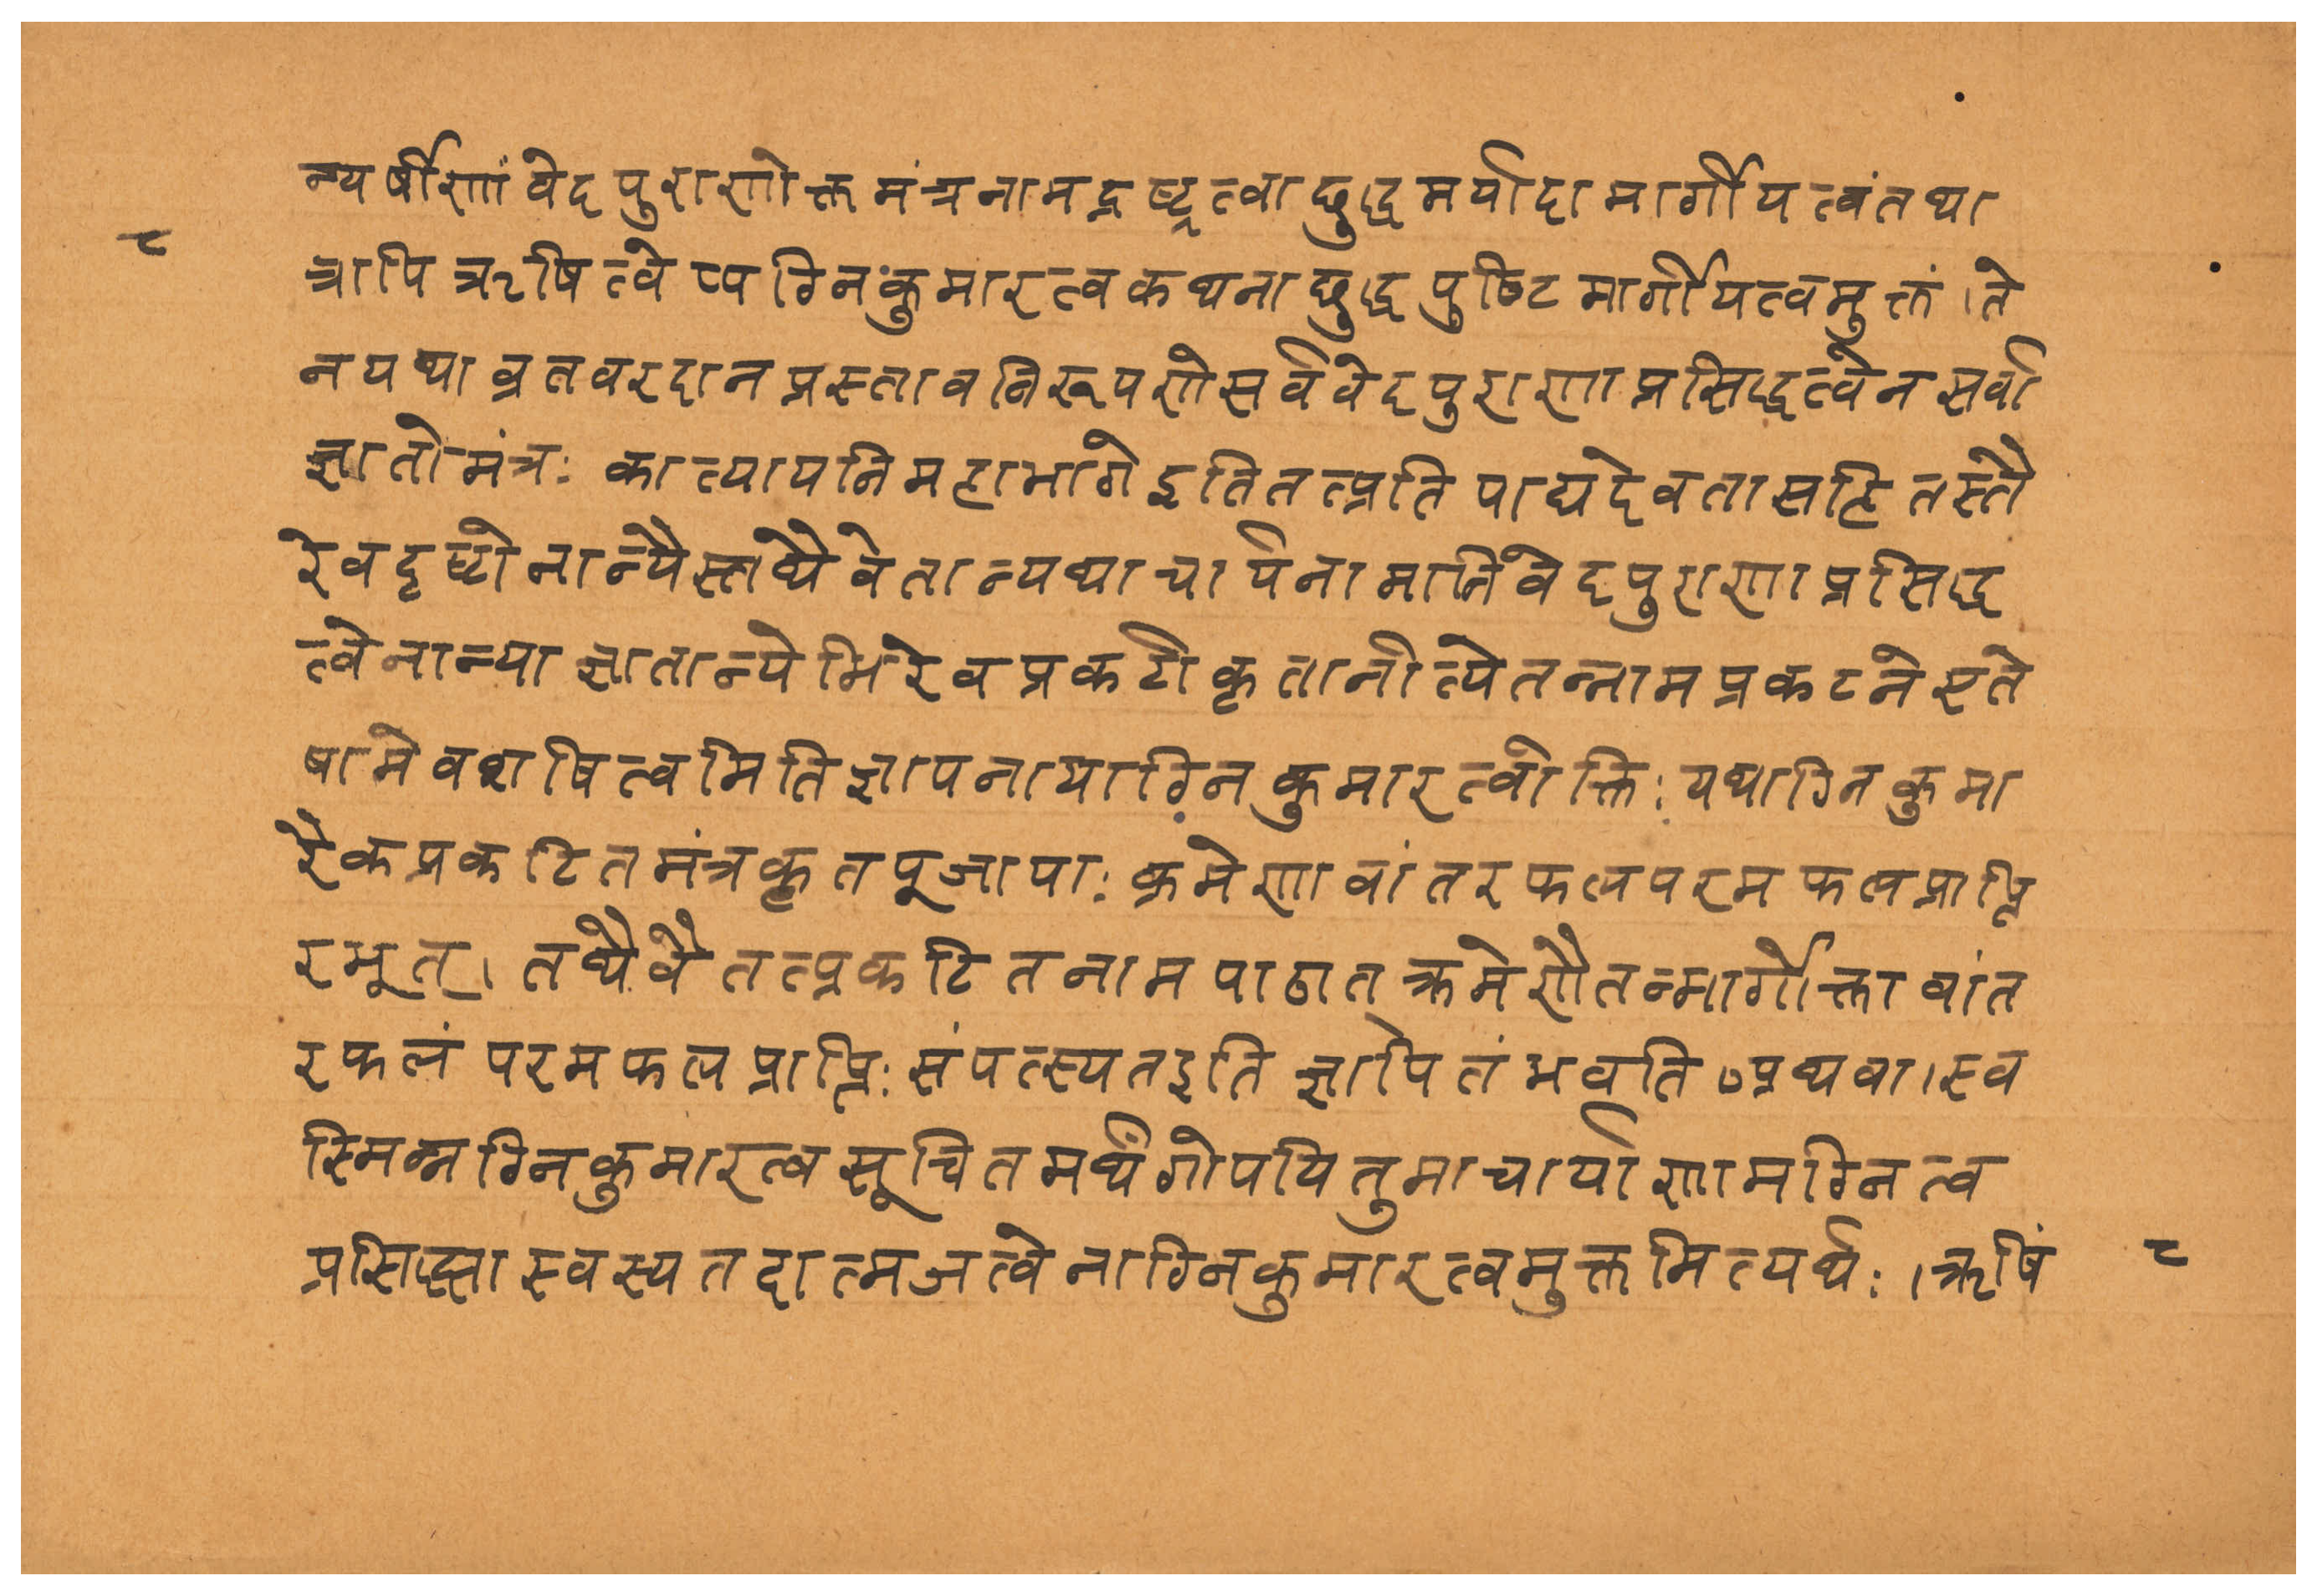 न्यर्षीणां वेदपुराणोक्तमंत्रनामद्रष्ट्रत्वाछुद्धमर्यादामार्गीयत्वं तथा
८
त्रापि ऋषित्वेप्यग्निकुमारत्वकथनाछुद्धपुष्टिमार्गीयत्वमुक्तं ।ते
न यथा व्रतवरदानप्रस्तावनिरूपणे सर्ववेदपुराणाप्रसिद्धत्वेन सर्वा
ज्ञातो मंत्रः कात्यायनि महाभागे इति तत्प्रतिपाद्यदेवतासहितस्तै
रेव दृष्टो नान्यैस्तथैवेतान्यथाचार्यनामानि वेदपुराणाप्रसिद्ध
त्वेनान्याज्ञातान्येभिरेव प्रकटीकृतानीत्येतन्नामप्रकटने एते
षामेवशषित्वमिति ज्ञापनायाग्निकुमारत्वोक्तिः यथाग्निकुमा
रैकप्रकटितमंत्रकृतपूजायाः क्रमेणावांतरफलपरमफलप्राप्ति
रभूत् । तथैवैतत्प्रकटितनामपाठात् क्रमेणैतन्मार्गोक्तावांत
रफलं परमफलप्राप्तिः संपत्स्यत इति ज्ञापितं भवति अथवा । स्व
स्मिन्नग्निकुमारत्वसूचितमर्थं गोपयितुमाचार्याणामग्नित्व
प्रसिद्ध्या स्वस्य तदात्मजत्वेनाग्निकुमारत्वमुक्तमित्यर्थः । ऋषिं
८